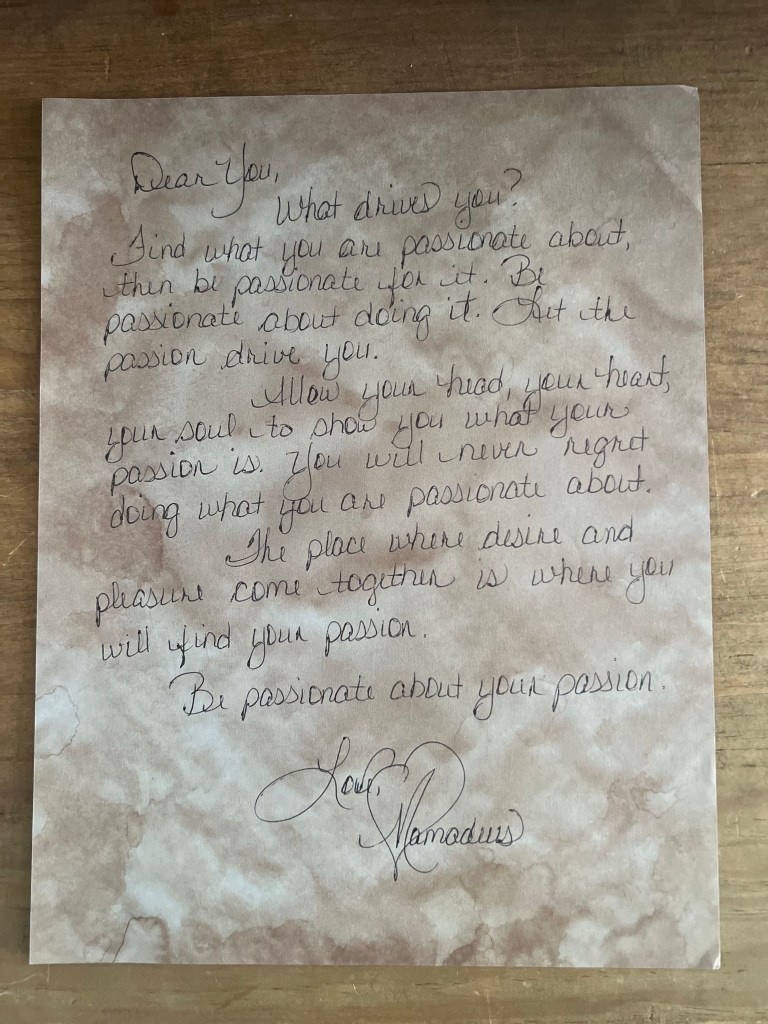 Dear You,
What drives you?
Find what you are passionate about,
then be passionate for it. Be
passionate about doing it. Let the
passion drive you.
Allow your head, your heart,
your soul to show you what your
passion is. You will never regret
doing what you are passionate about.
The place where desire and
pleasure come together is where you
will find your passion.
Be passionate about your passion.
Love,
Mamadeus